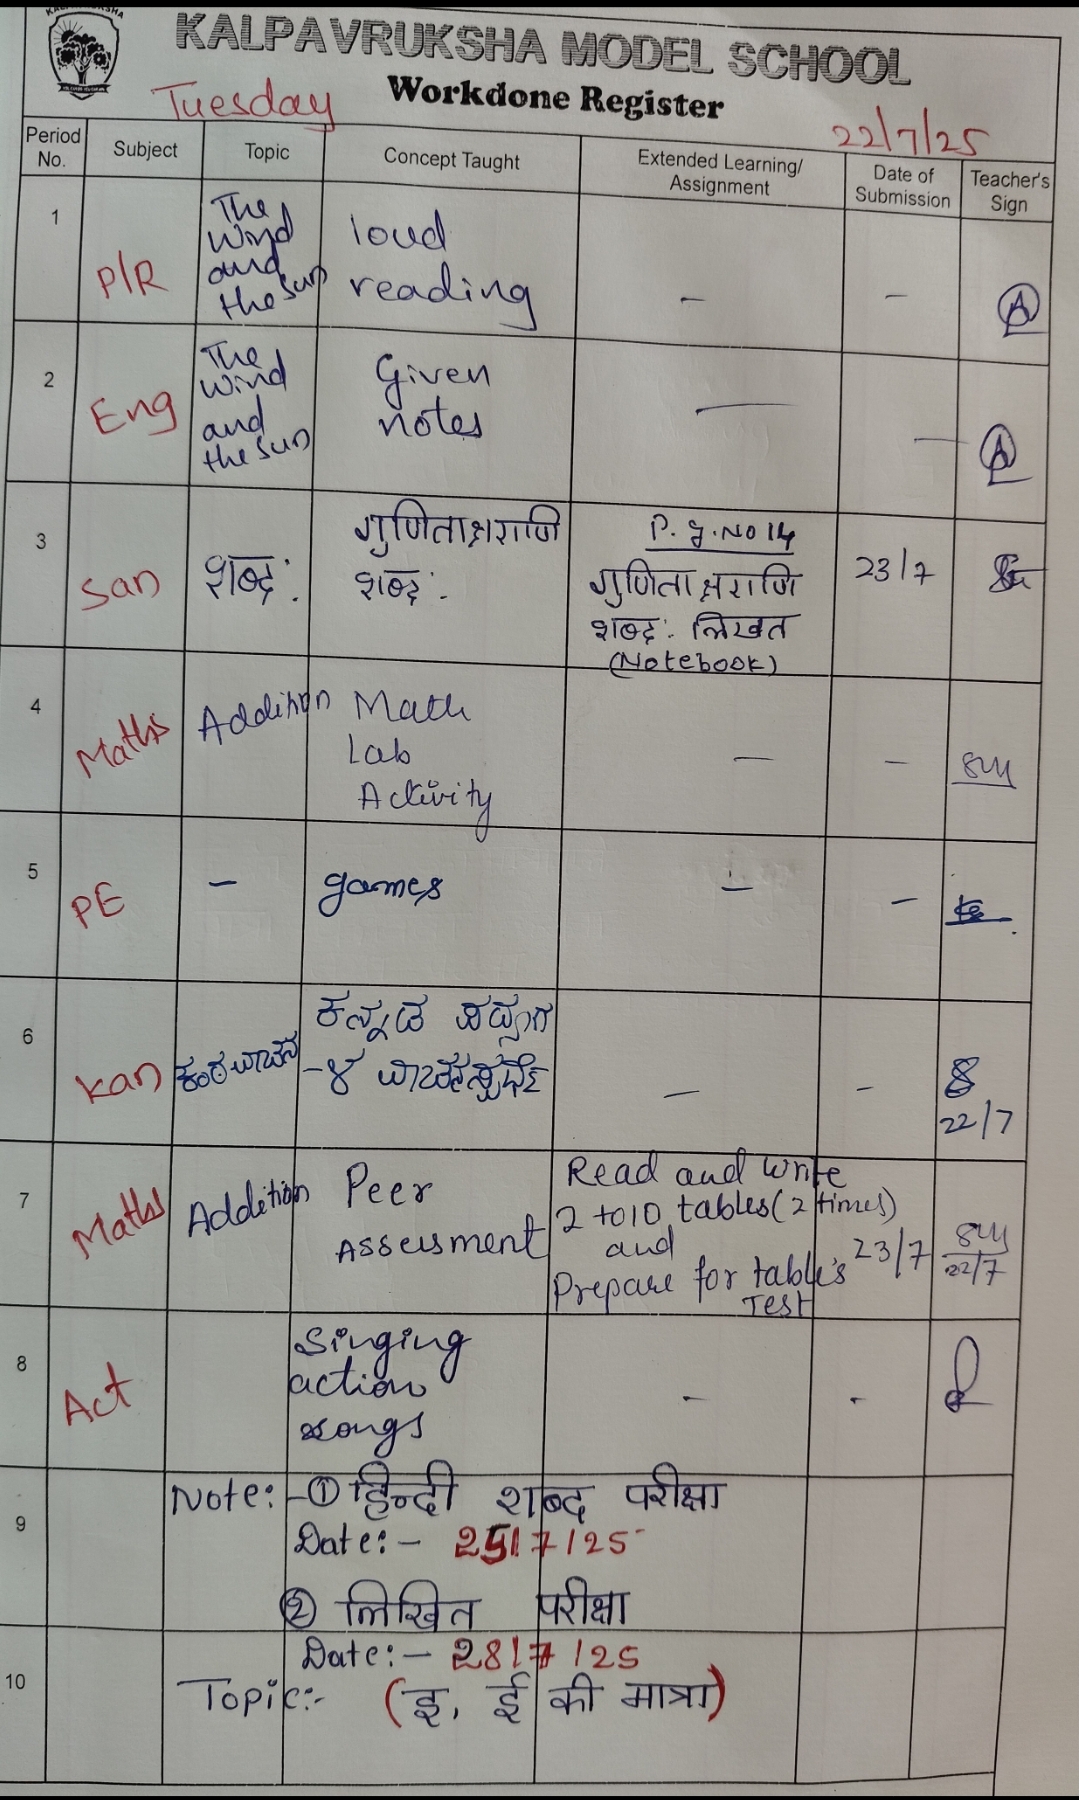 KALPAVRUKSHA MODEL SCHOOL
Workdone Register
Tuesday
22/7/25
Period No.
Subject
Topic
Concept Taught
Extended Learning/ Assignment
Date of Submission
Teacher's Sign
1
P/R
The
Wind
and
the sun
loud
reading
-
-
2
Eng
The
Wind
and
the sun
Given
notes
-
-
3
San
शब्दः
गुणिताक्षराणि
शब्दः
P.g.No 14
गुणिताक्षराणि
शब्दः लिखत
(Notebook)
23/7
4
Maths
Addition
Math
Lab
Activity
-
-
5
PE
-
games
-
-
6
Kan
ಕಂಠವಾಚನ
ಕನ್ನಡ
-೪
-
-
22/7
7
Maths
Addition
Peer
Assessment
Read and write
2 to 10 tables (2 times)
and
Prepare for table's
Test
23/7
22/7
8
Act
Singing
action
songs
-
-
9
Note: - ① हिन्दी शब्द परीक्षा
Date:- 25/7/25
② लिखित परीक्षा
Date:- 28/7/25
10
Topic:- (इ, ई की मात्रा)